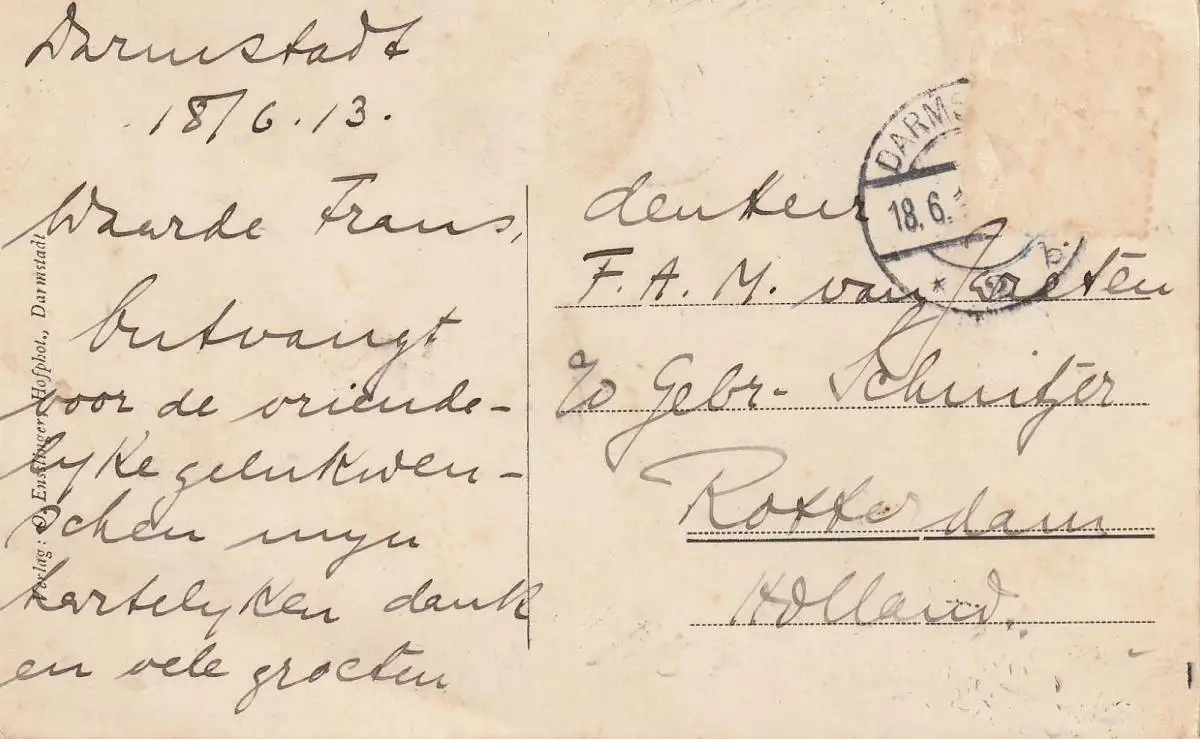 Darmstadt
18/6.13.
Waarde Frans,
Ontvangt
voor de vriende-
lyke gelukwen-
schen myn
hartelyken dank
en vele groeten
Verlag: O. Ensslinger, Hofphot., Darmstadt
DARMS
18.6.1
* b.
den Heer
F. A. M. van
c/o Gebr. Schnitzer
Rotterdam
Holland.